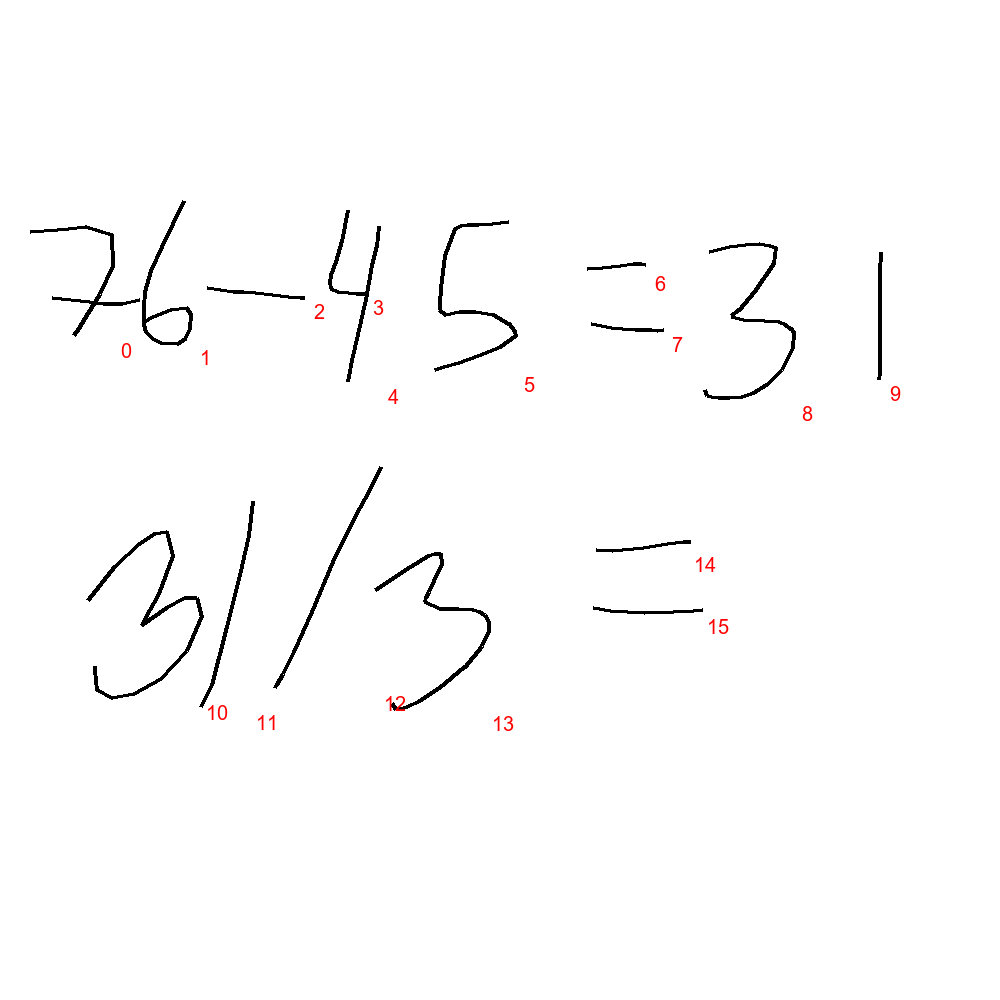 76-45=31
31/3=
0 1 2 3 4 5 6 7 8 9
10 11 12 13 14 15